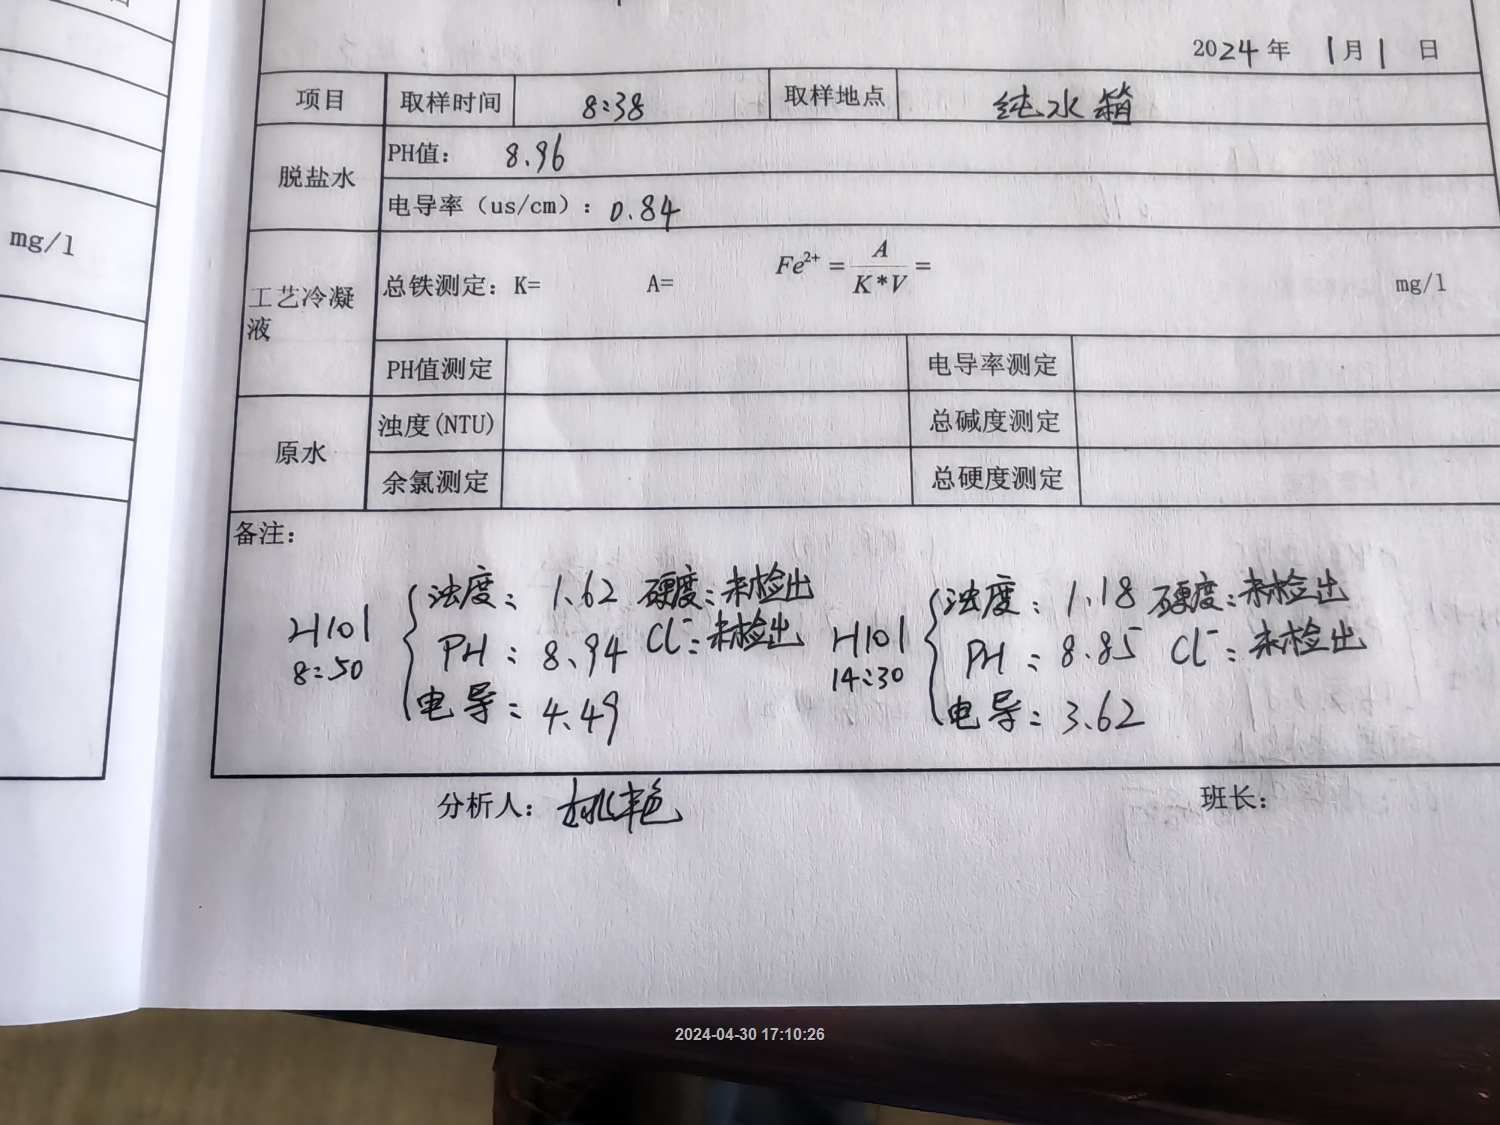 2024年 1月1 日
项目 取样时间 8:38 取样地点 纯水箱
脱盐水
PH值: 8.96
电导率(us/cm): 0.84
mg/l
工艺冷凝液
总铁测定: K= A= Fe²⁺ = A / K*V = mg/l
PH值测定 电导率测定
原水
浊度(NTU) 总碱度测定
余氯测定 总硬度测定
备注:
H101 8:50
浊度: 1.62 硬度: 未检出
PH: 8.94 Cl⁻: 未检出
电导: 4.49
H101 14:30
浊度: 1.18 硬度: 未检出
PH: 8.85 Cl⁻: 未检出
电导: 3.62
分析人: 班长:
2024-04-30 17:10:26